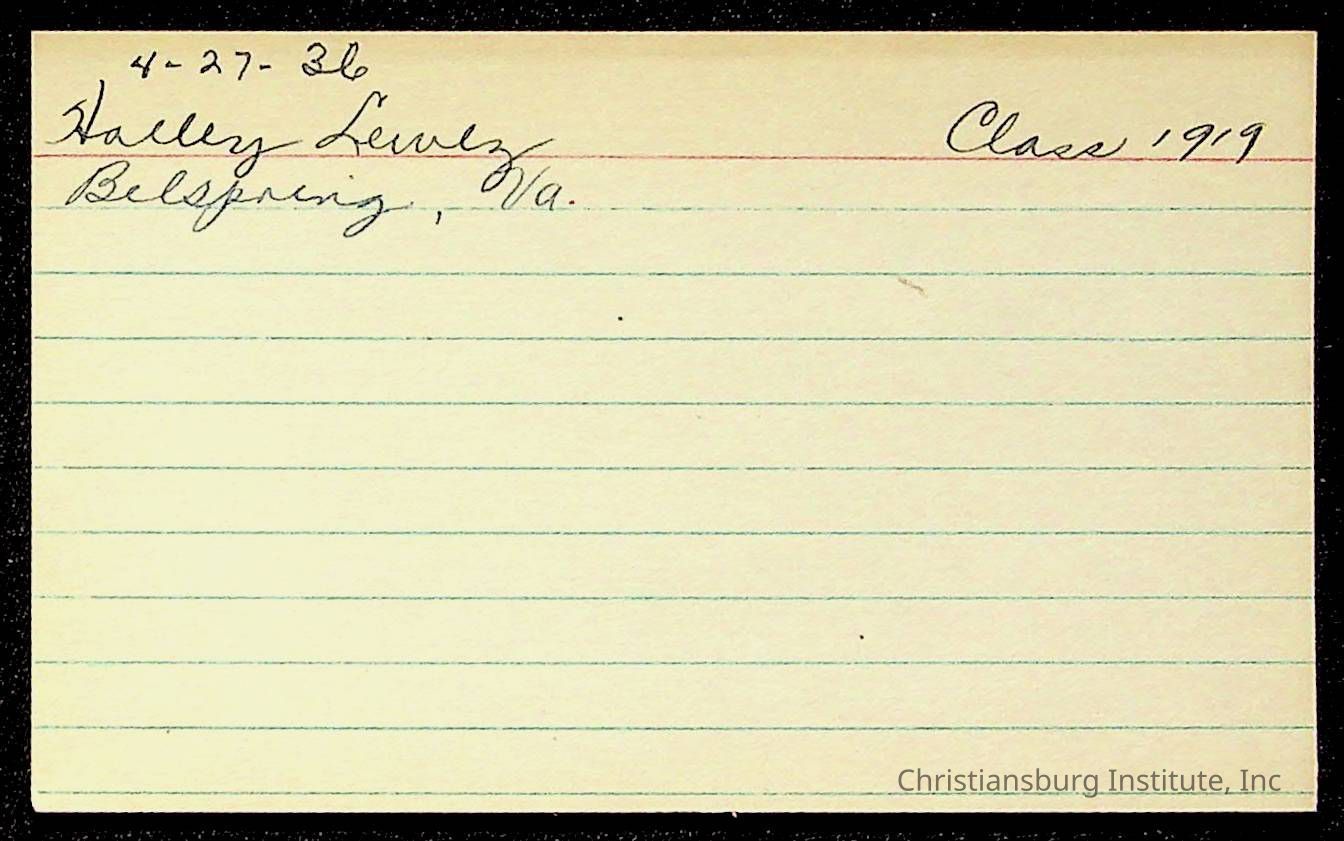 4-27-36
Halley Lewey Class 1919
Belspring, Va.
Christiansburg Institute, Inc